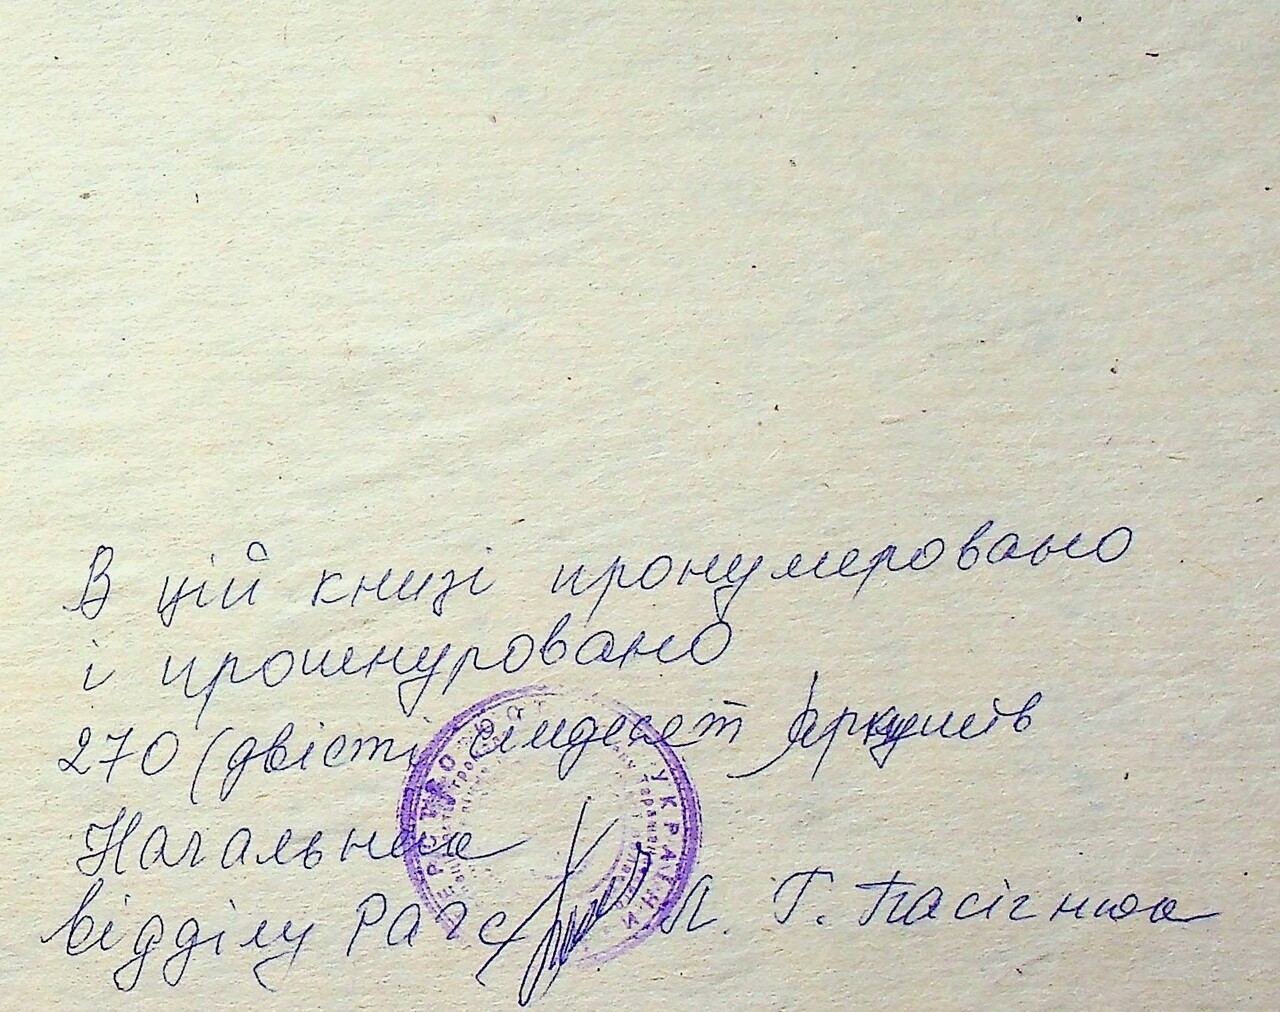 В цій книзі пронумеровано
і прошнуровано
270 (двісті сімдесят аркушів
Начальник
відділу РАГС Л. Г. Пасічнюк
УКРАЇНИ